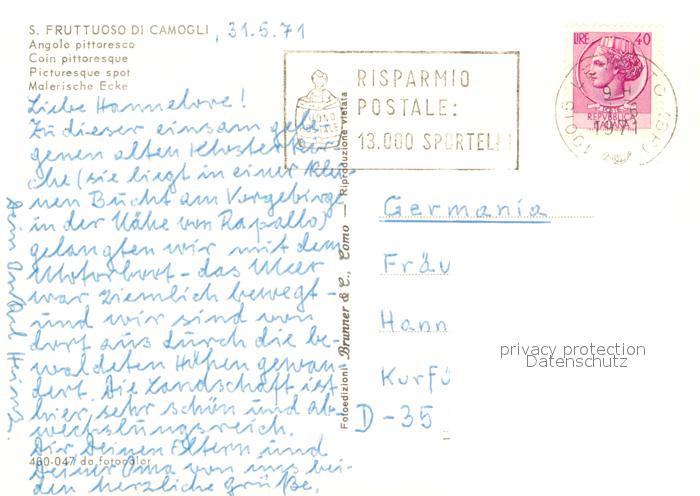 S. FRUTTUOSO DI CAMOGLI, 31.5.71
Angolo pittoresco
Coin pittoresque
Picturesque spot
Malerische Ecke
Liebe Hannelore!
Zu dieser einsam gele-
genen alten Klosterkir-
che (sie liegt in einer klei-
nen Bucht am Vorgebirge
in der Nähe von Rapallo)
gelangten wir mit dem
Motorboot - das Meer
war ziemlich bewegt -
und wir sind von
dort aus durch die be-
waldeten Höhen gewan-
dert. Die Landschaft ist
hier sehr schön und ab-
wechslungsreich.
Dir Deinen Eltern und
Deiner Oma von uns bei-
den herzliche Grüße,
Dein Heinz.
400-047 da fotocolor
Fotoedizioni Brunner & C., Como — Riproduzione vietata
RISPARMIO
POSTALE:
13.000 SPORTELLI
LIRE 40
1971
Germania
Fräu
Hann
Kurfü
D-35
privacy protection
Datenschutz